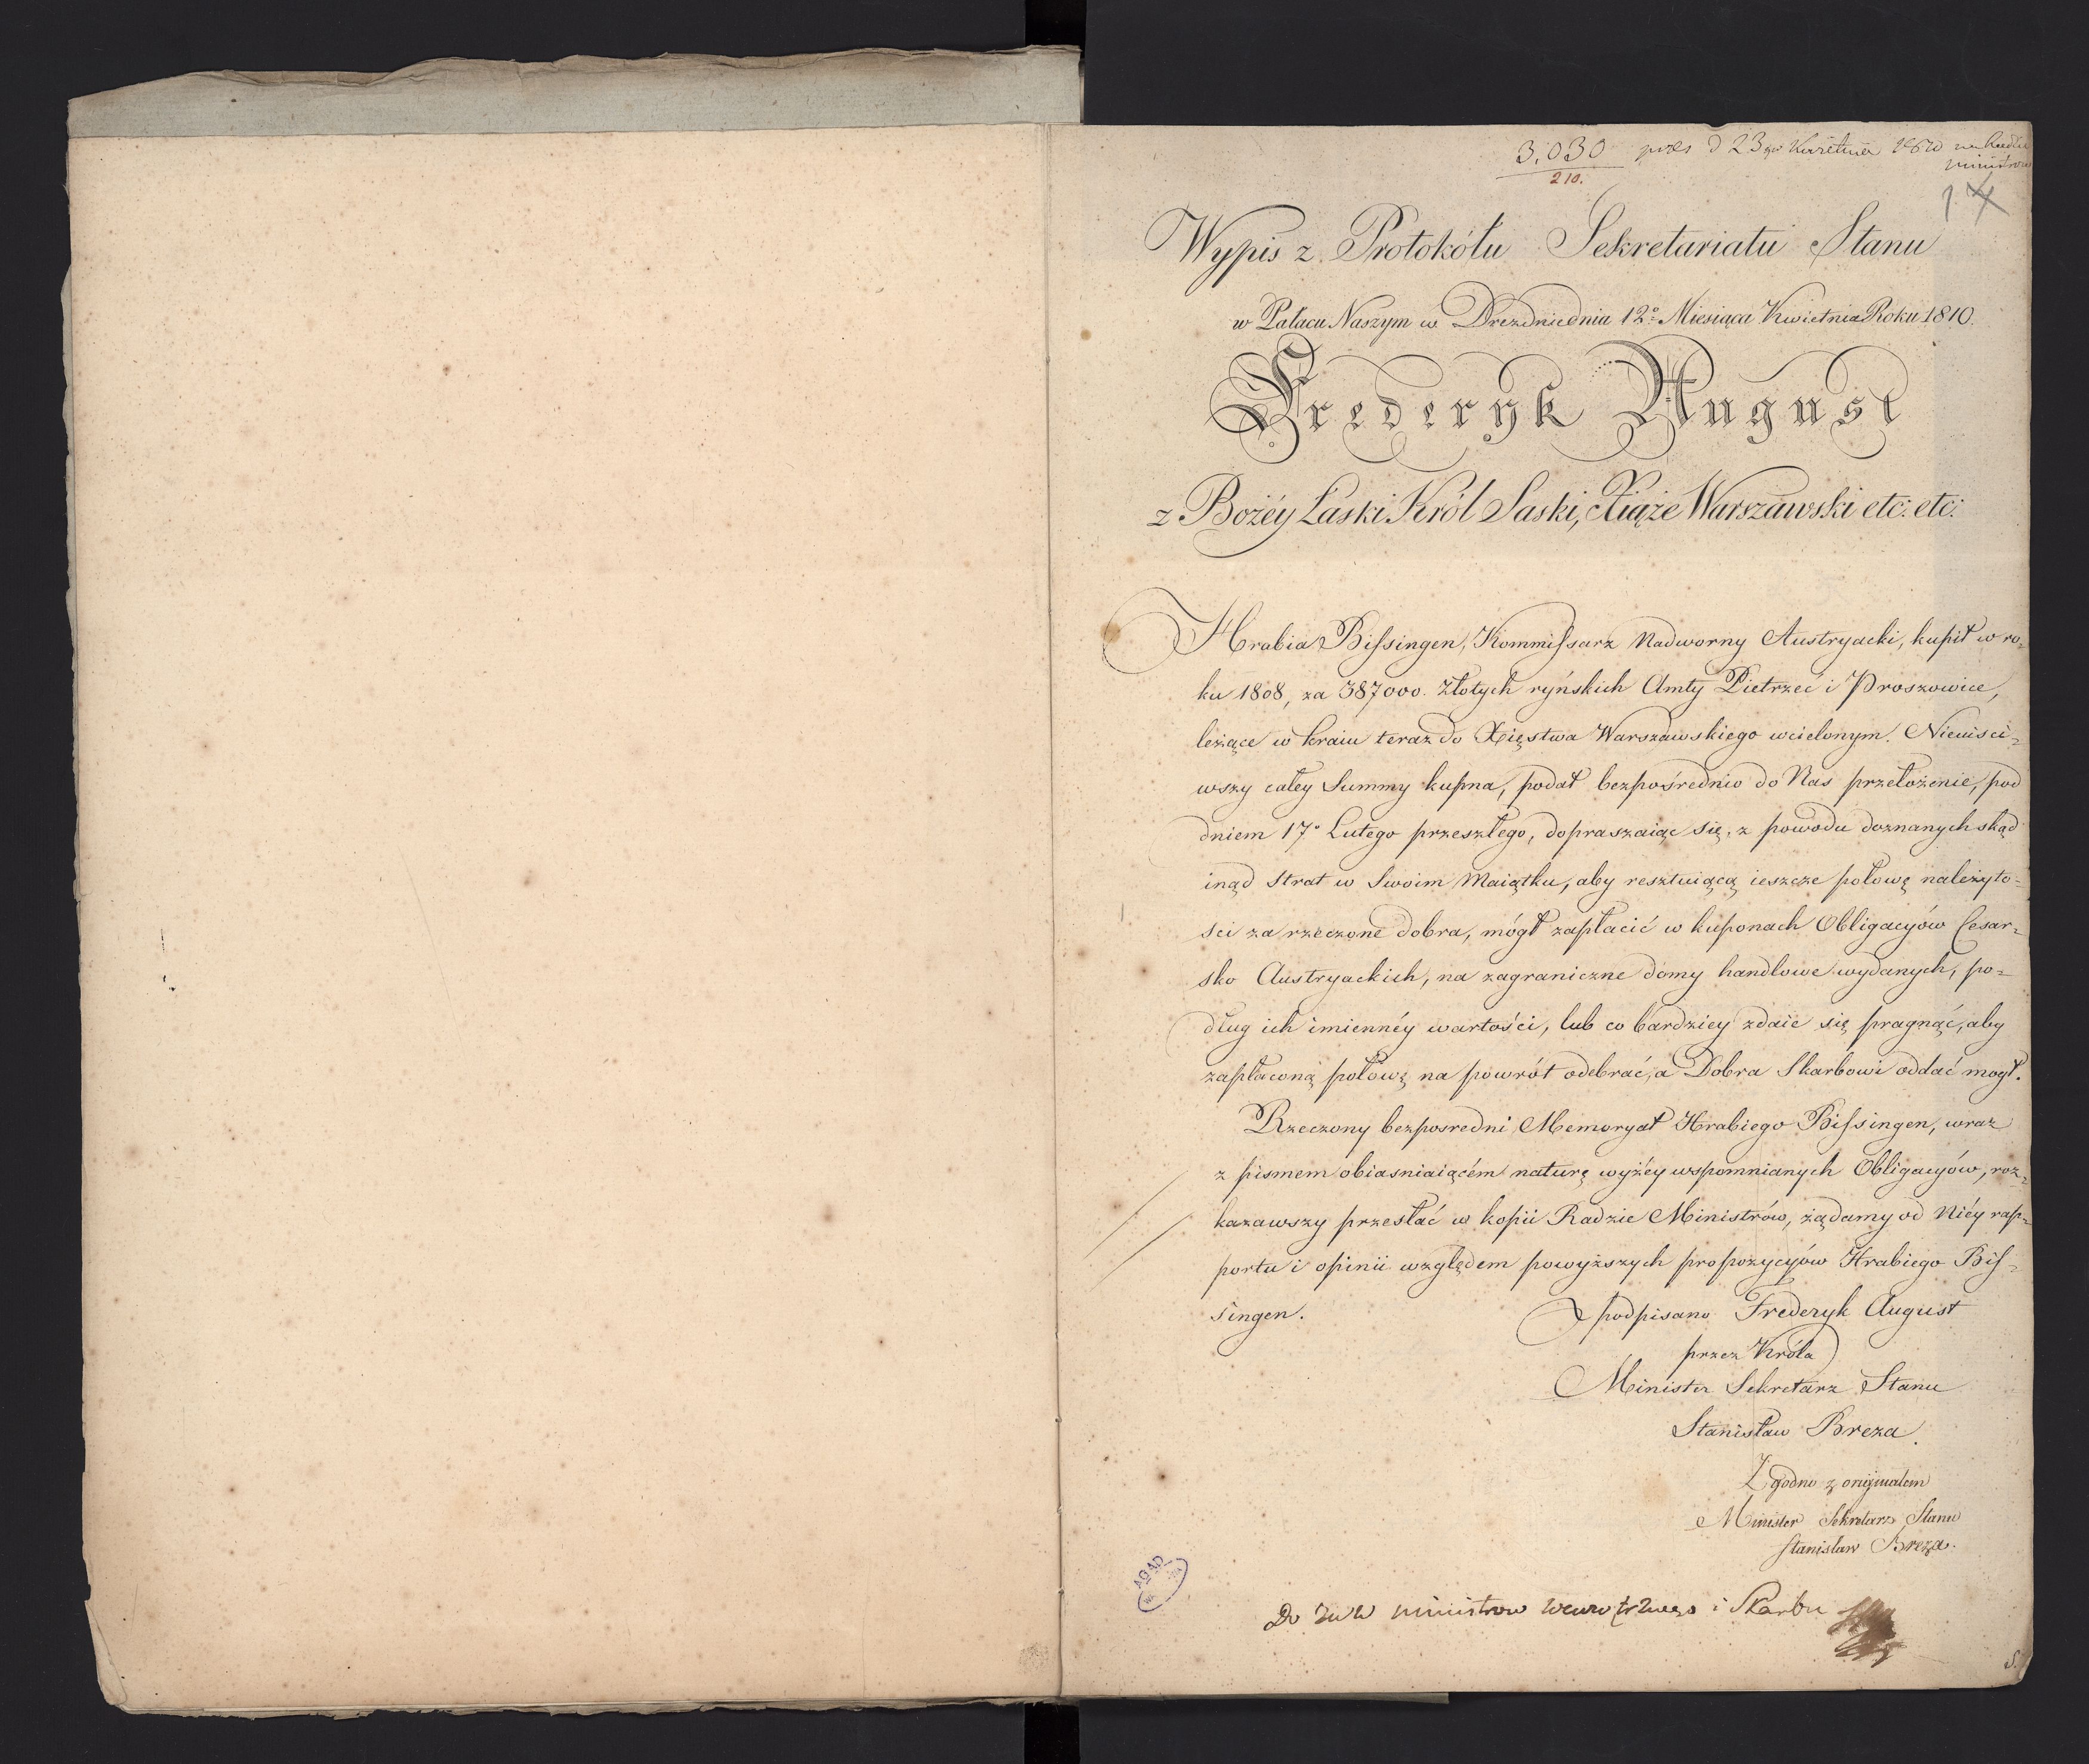 3,030 prez d 23go Kwietnia 1810 na Radzie
ministrow
210.
14
Wypis z Protokółu Sekretariatu Stanu
w Pałacu Naszym w Dreznie dnia 12º Miesiąca Kwietnia Roku 1810.
Frederyk August
z Bożéy Łaski Król Saski, Xiąże Warszawski etc: etc:
Hrabia Bissingen, Kommissarz Nadworny Austryacki, kupił w ro-
ku 1808, za 387000. złotych ryńskich Amty Pietrzeć i Proszowice,
leżące w kraiu teraz do Xięstwa Warszawskiego wcielonym. Nieuisci-
wszy całey Summy kupna, podał bezpośrednio do Nas przełożenie, pod
dniem 17º Lutego przeszłego, dopraszaiąc się, z powodu doznanych skąd
inąd strat w Swoim Maiątku, aby resztuiącą ieszcze połowę należyto-
sci za rzeczone dobra, mógł zapłacić w kuponach Obligacyów Cesar-
sko Austryackich, na zagraniczne domy handlowe wydanych, po-
dług ich imiennéy wartości, lub co bardziey zdaie się pragnąć, aby
zapłaconą połowę na powrót odebrać, a Dobra Skarbowi oddać mogł.
Rzeczony bezposredni Memoryał Hrabiego Bissingen, wraz
z pismem obiasniaiącém naturę wyżéy wspomnianych Obligacyów, roz-
kazawszy przesłać w kopii Radzie Ministrów, żądamy od Niéy rap-
portu i opinii względem powyższych propozycyów Hrabiego Bis-
singen.
podpisano Frederyk August
przez Króla
Minister Sekretarz Stanu
Stanisław Breza.
Zgodno z oryginałem
Minister Sekretarz Stanu
Stanisław Breza.
AGAD
Do JWW Ministrow wewnętrznego i Skarbu